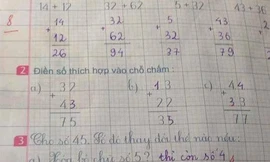 14 + 12 32 + 62 5 + 32 43 + 36
8 14 32 5 43
+ + + +
12 62 32 36
26 94 37 79
2 Điền số thích hợp vào chỗ chấm :
a) 32 b) 13 c) 44
+ + +
43 22 33
75 35 77
3 Cho số 45. Số đó thay đổi thế nào nếu:
a) bỏ chữ số 5? thì còn số 4